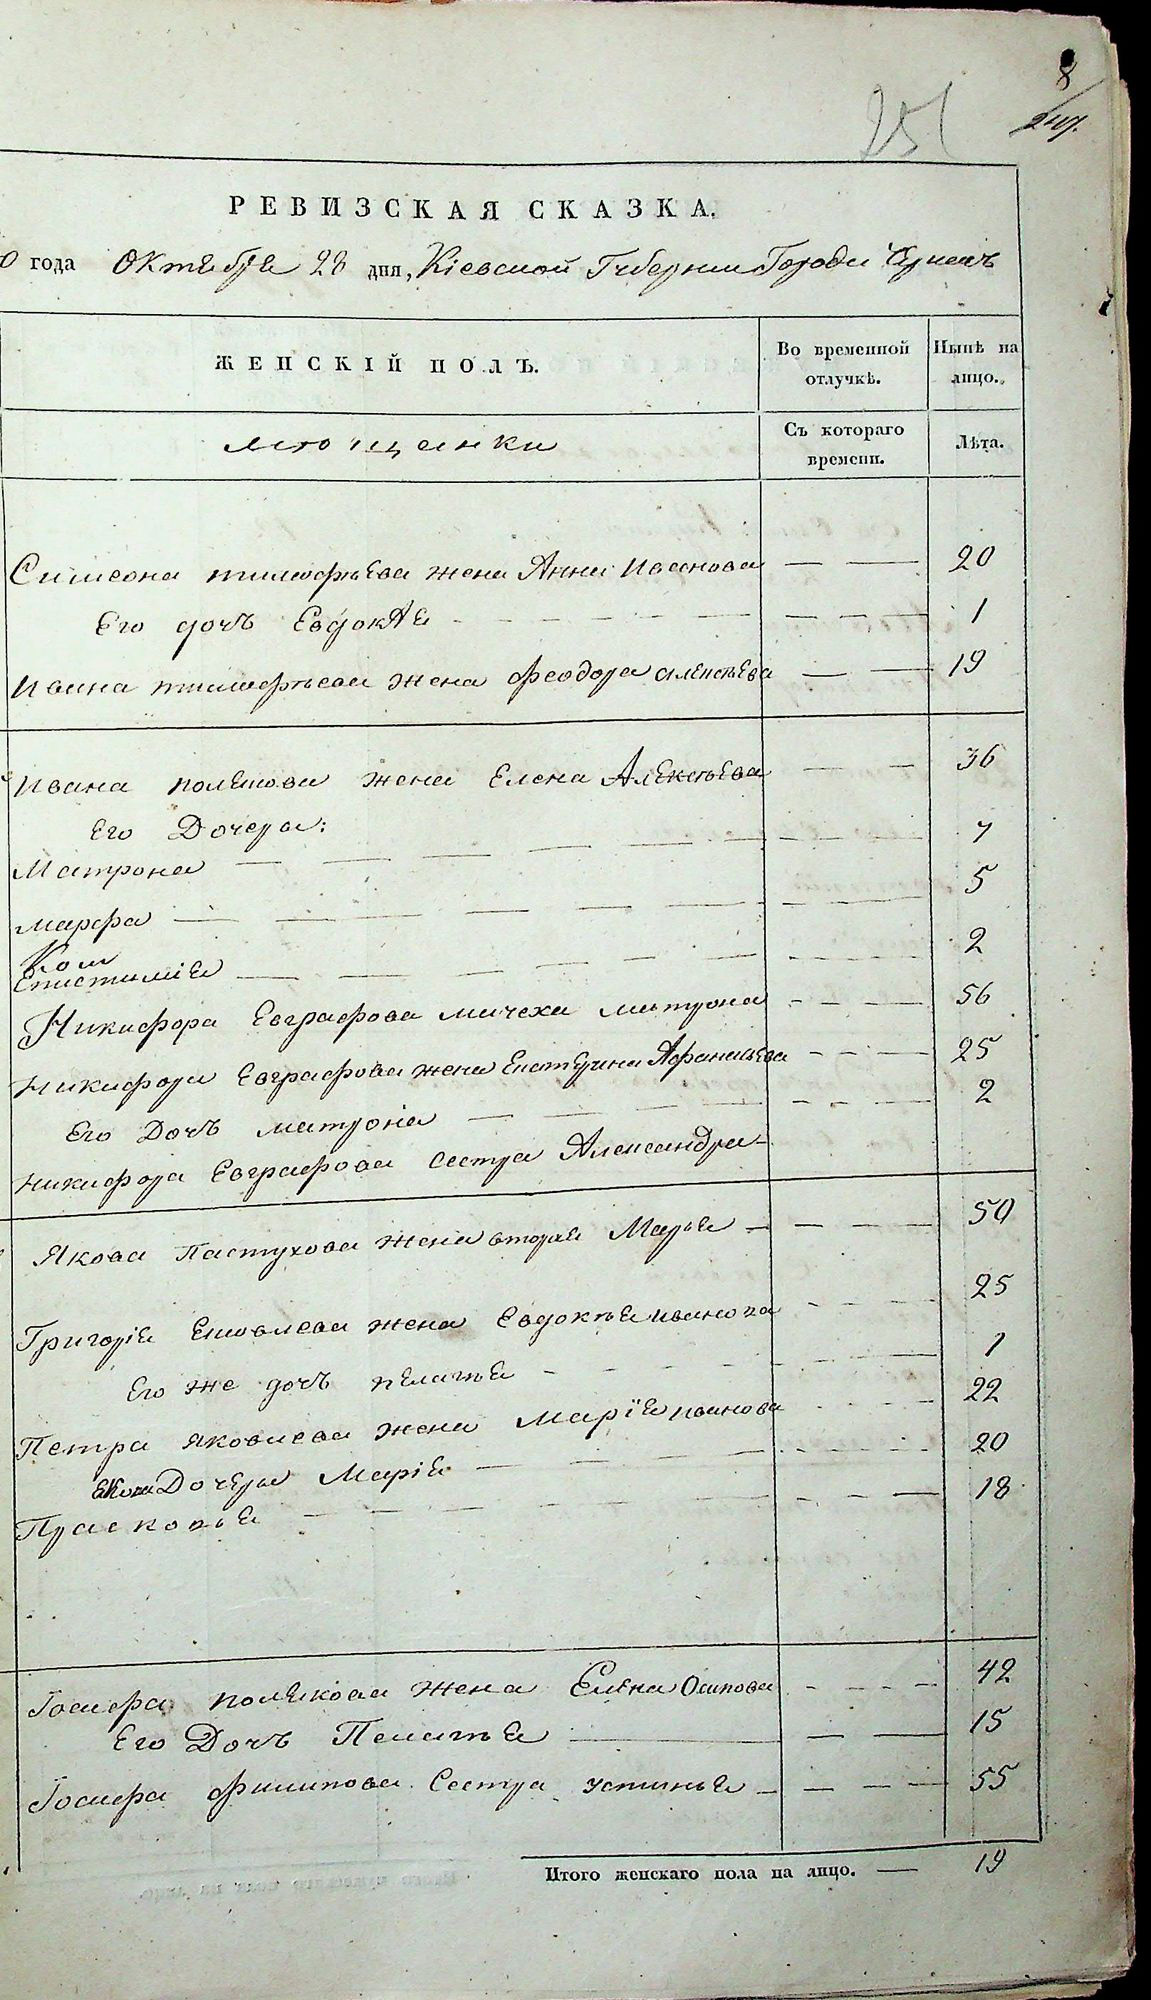 8
247.
251
РЕВИЗСКАЯ СКАЗКА.
0 года Октября 28 дня, Кіевской Губернии Города
ЖЕНСКІЙ ПОЛЪ.
Во временной отлучкѣ.
Нынѣ на лицо.
мѣщанки
Съ котораго времени.
Лѣта.
Симеона тимофѣева жена Анна Иванова — — 20
Его дочь Евдокія — — 1
Ивана тимофѣева жена Феодора алексѣева — — 19
Ивана полякова жена Елена Алексѣева — — 36
Его Дочери:
Матрона — — 7
марфа — — 5
Епистимія — — 2
Никифора Евграфова мачеха матрона — — 56
Никифора Евграфова жена Екатерина Афанасьева — — 25
Его Дочь матрона — — 2
Никифора Евграфова сестра Александра
Якова Пастухова жена вторая Марья — — 50
Григорія Яковлева жена Евдокія иванова — — 25
Его же дочь пелагья — — 1
Петра яковлева жена Марія иванова — — 22
Дочери Марія — — 20
Прасковья — — 18
Іосифа полякова жена Елена Осипова — — 42
Его Дочь Пелагья — — 15
Іосифа филипова Сестра устинья — — 55
Итого женскаго пола на лицо. — 19